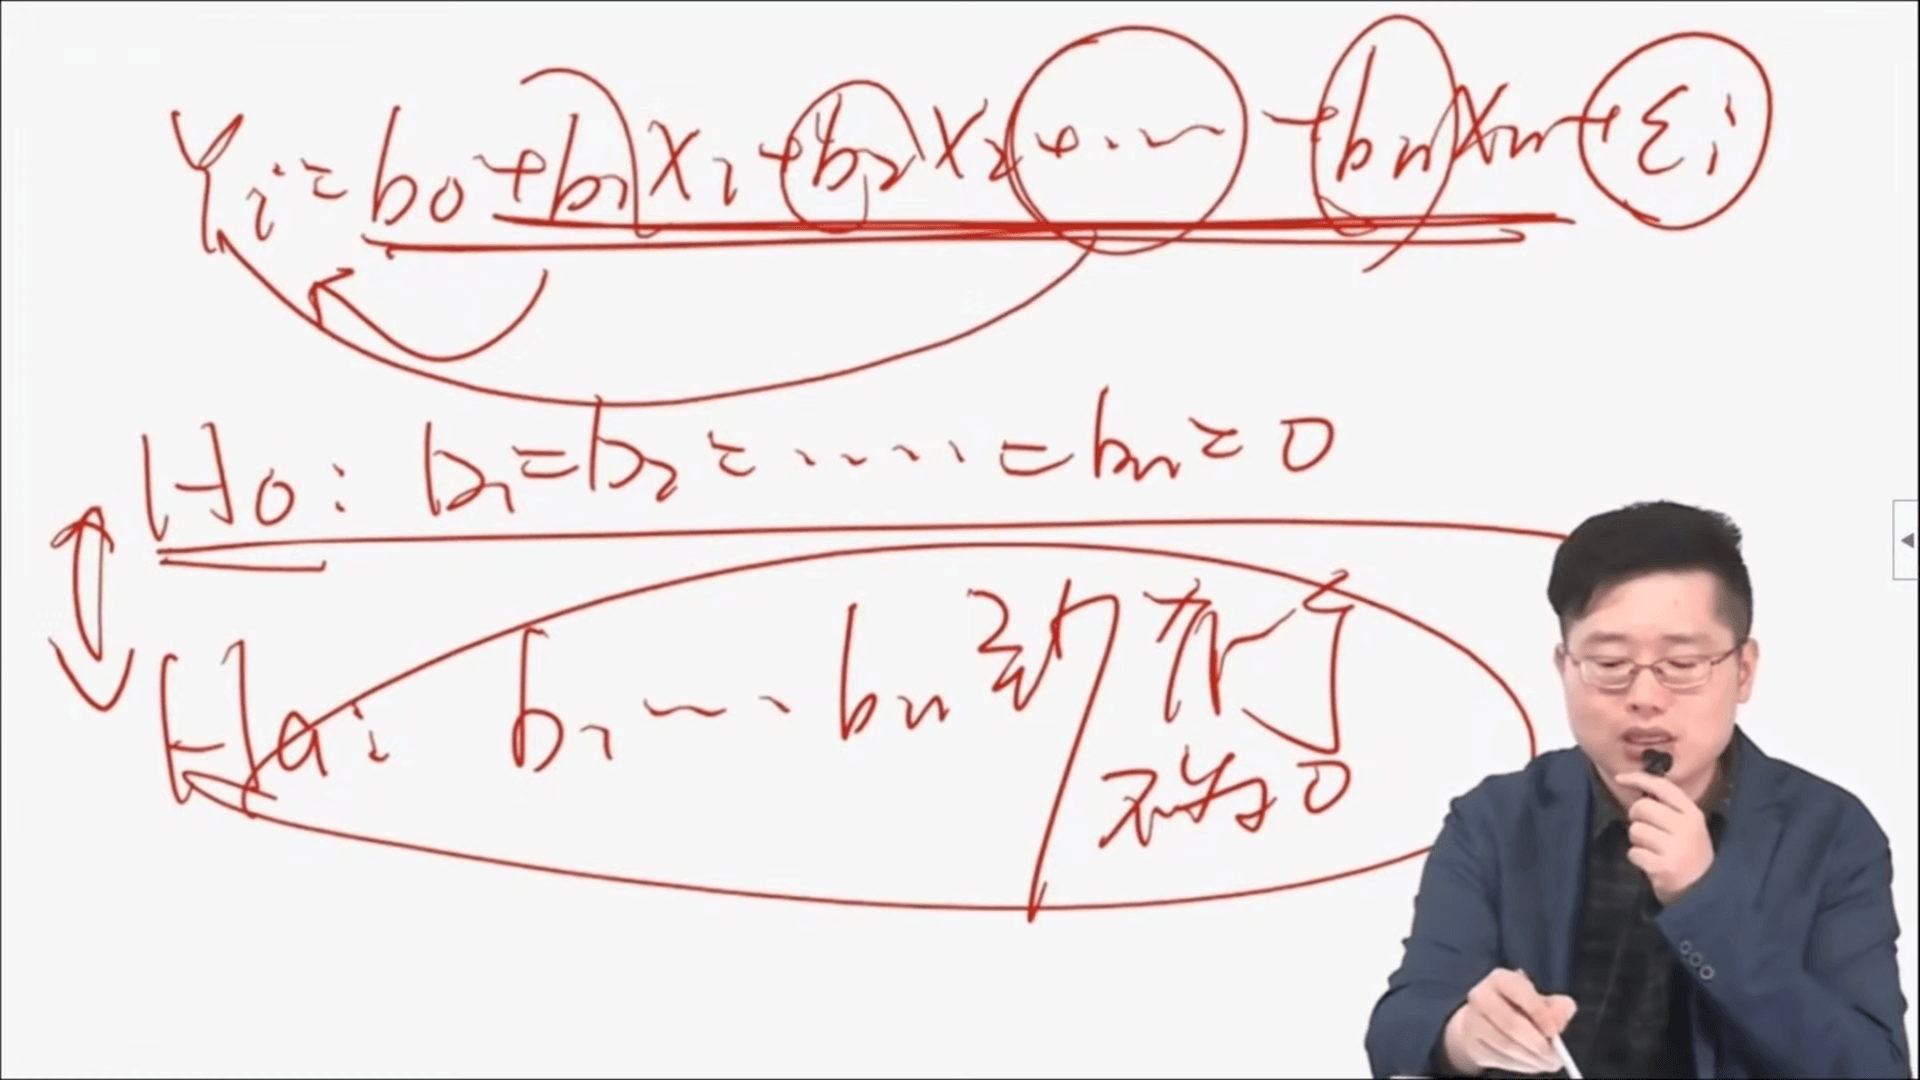 Yi = b0 + b1 X1 + b2 X2 + ... + bn Xn + εi
H0: b1 = b2 = ...... = bn = 0
Ha: b1 ... bn
不为0